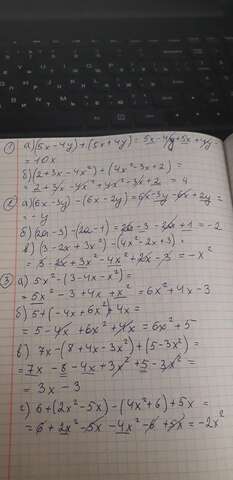 ① а) (5x - 4y) + (5x + 4y) = 5x - 4y + 5x + 4y =
= 10x
б) (2 + 3x - 4x²) + (4x² - 3x + 2) =
= 2 + 3x - 4x² + 4x² - 3x + 2 = 4
② а) (6x - 3y) - (6x - 2y) = 6x - 3y - 6x + 2y =
= -y
б) (2a - 3) - (2a - 1) = 2a - 3 - 2a + 1 = -2
в) (3 - 2x + 3x²) - (4x² - 2x + 3) =
= 3 - 2x + 3x² - 4x² + 2x - 3 = -x²
③ а) 5x² - (3 - 4x - x²) =
= 5x² - 3 + 4x + x² = 6x² + 4x - 3
б) 5 + (-4x + 6x²) + 4x =
= 5 - 4x + 6x² + 4x = 6x² + 5
в) 7x - (8 + 4x - 3x²) + (5 - 3x²) =
= 7x - 8 - 4x + 3x² + 5 - 3x² =
= 3x - 3
г) 6 + (2x² - 5x) - (4x² + 6) + 5x =
= 6 + 2x² - 5x - 4x² - 6 + 5x = -2x²